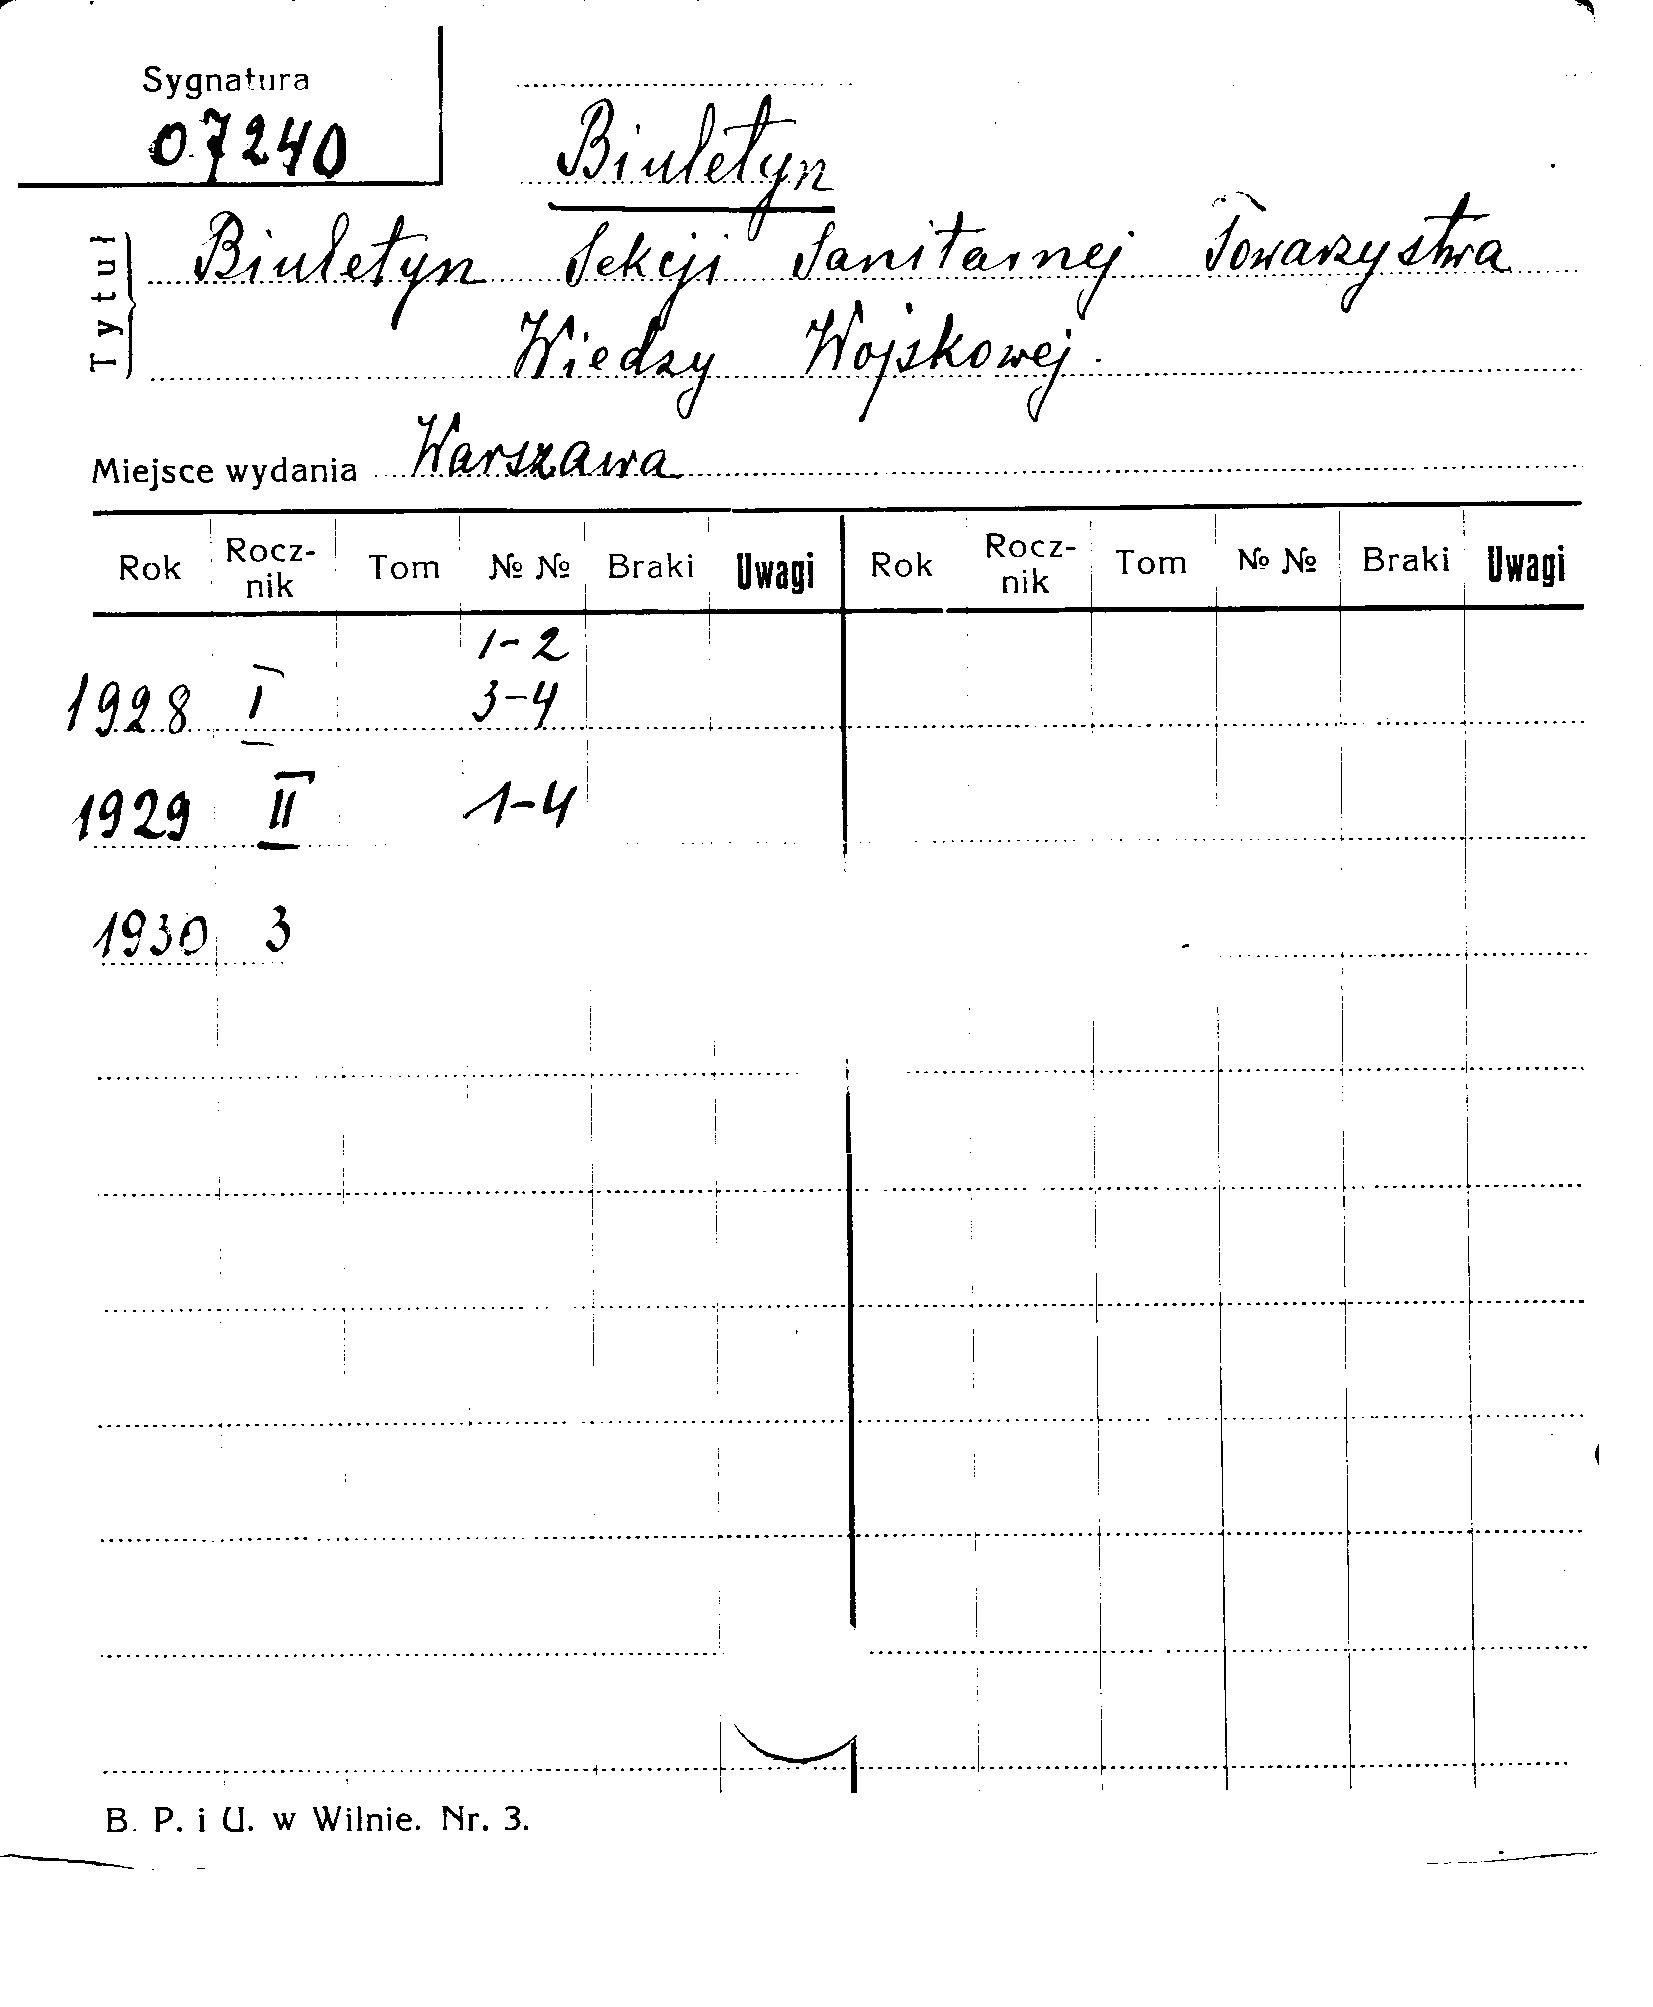 Sygnatura
07240
Biuletyn
Tytuł
Biuletyn Sekcji Sanitarnej Towarzystwa
Wiedzy Wojskowej.
Miejsce wydania Warszawa
Rok Rocz-nik Tom № № Braki Uwagi Rok Rocz-nik Tom № № Braki Uwagi
1-2
1928 I 3-4
1929 II 1-4
1930 3
B. P. i U. w Wilnie. Nr. 3.